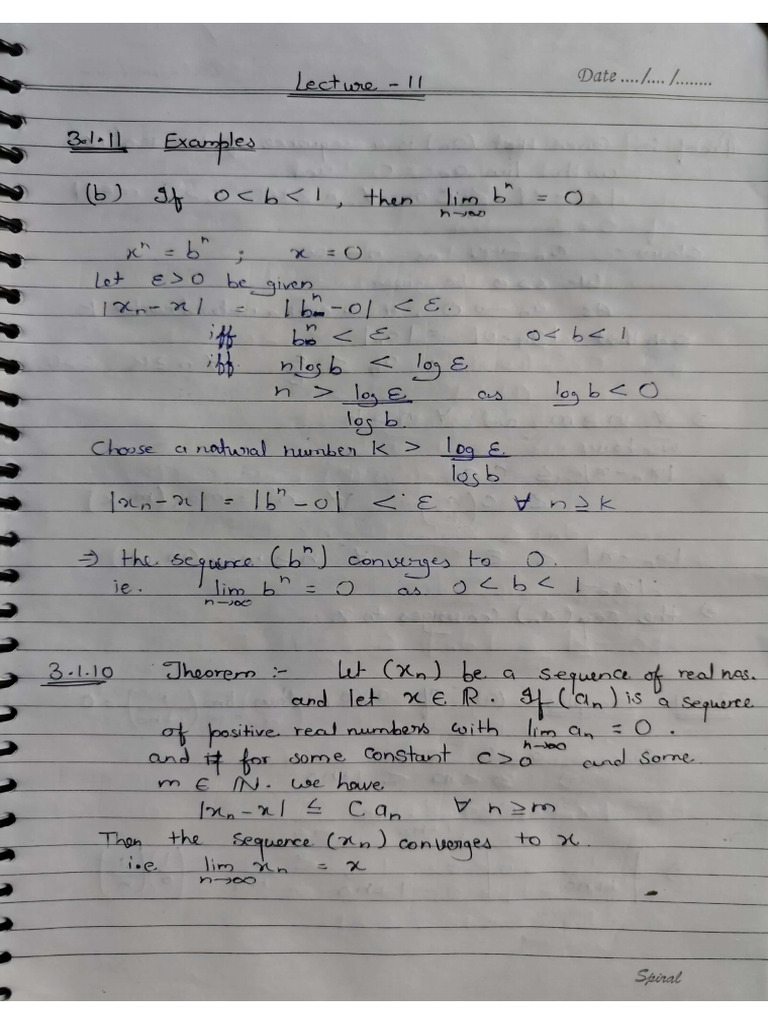 Lecture - 11
Date ..../.... /........
3.1.11 Examples
(b) If 0 < b < 1, then lim n→∞ bⁿ = 0
xⁿ = bⁿ ; x = 0
Let ε > 0 be given
|xₙ - x| = |bⁿ - 0| < ε.
iff bⁿ < ε 0 < b < 1
iff n log b < log ε
n > log ε / log b. as log b < 0
Choose a natural number K > log ε / log b
|xₙ - x| = |bⁿ - 0| < ε ∀ n ≥ K
⇒ the sequence (bⁿ) converges to 0.
ie. lim n→∞ bⁿ = 0 as 0 < b < 1
3.1.10 Theorem :- Let (xₙ) be a sequence of real nos.
and let x ∈ ℝ. If (aₙ) is a sequence
of positive real numbers with lim n→∞ aₙ = 0.
and if for some constant c > 0 and some
m ∈ ℕ. we have
|xₙ - x| ≤ C aₙ ∀ n ≥ m
Then the sequence (xₙ) converges to x.
i.e lim n→∞ xₙ = x
Spiral